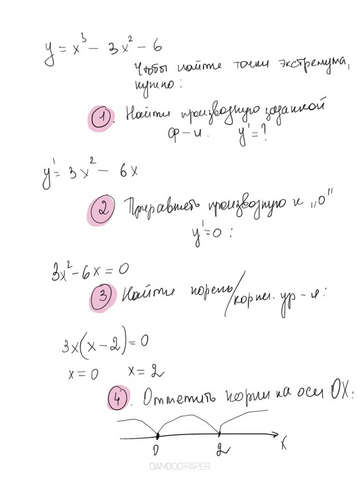 y = x³ - 3x² - 6
Чтобы найти точки экстремума,
нужно:
1. Найти производную заданной
ф-и. y' = ?
y' = 3x² - 6x
2 Приравнять производную к „0"
y' = 0 :
3x² - 6x = 0
3 Найти корень/корни. ур-я:
3x(x - 2) = 0
x = 0 x = 2
4. Отметить корни на оси OX:
0 2 x
BAMBOO PAPER